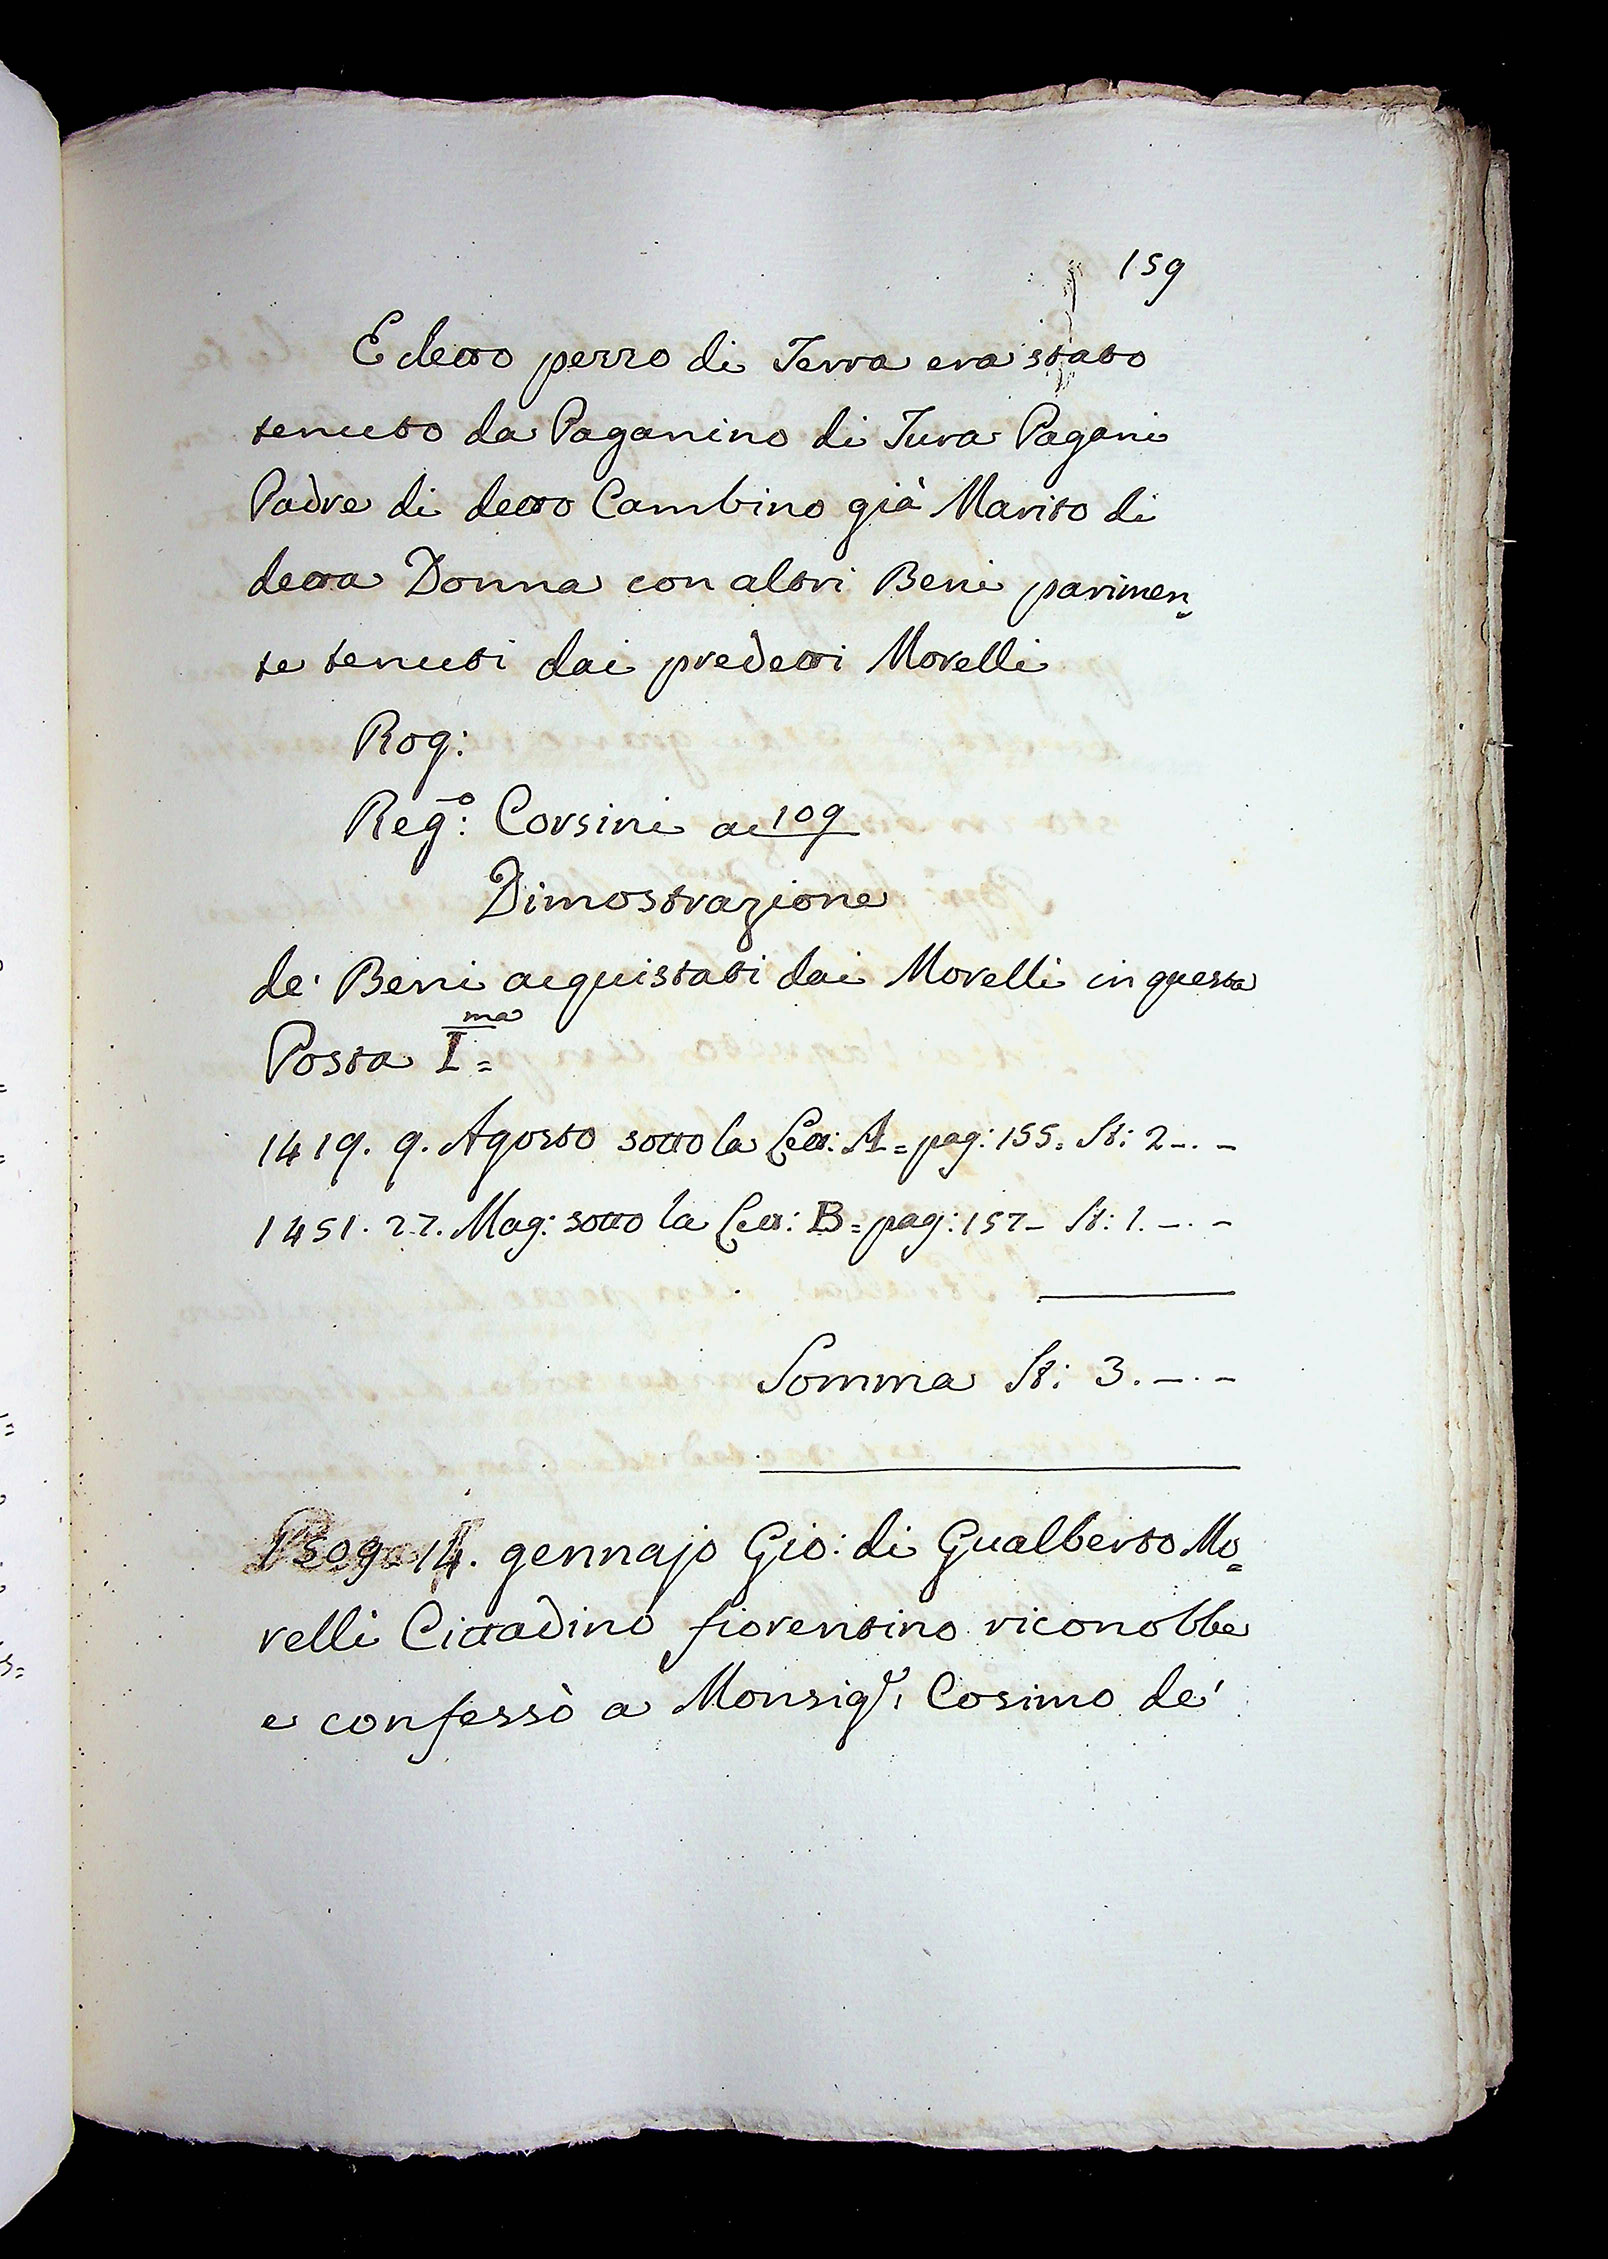 159
E detto pezzo di Terra era stato
tenuto da Paganino di Tura Pagani
Padre di detto Cambino già Marito di
detta Donna con altri Beni parimen=
te tenuti dai predetti Morelli
Rog:
Reg:º Corsini a 109
Dimostrazione
de' Beni acquistati dai Morelli in questa
Posta I=ma
1419. 9. Agosto sotto la Lett: A= pag: 155. St: 2 -. -
1451. 27. Mag: sotto la Lett: B= pag: 157- St: 1. -. -
Somma St: 3. -. -
14. gennajo Gio: di Gualberto Mo=
relli Cittadino fiorentino riconobbe
e confessò a Monsigr. Cosimo de'